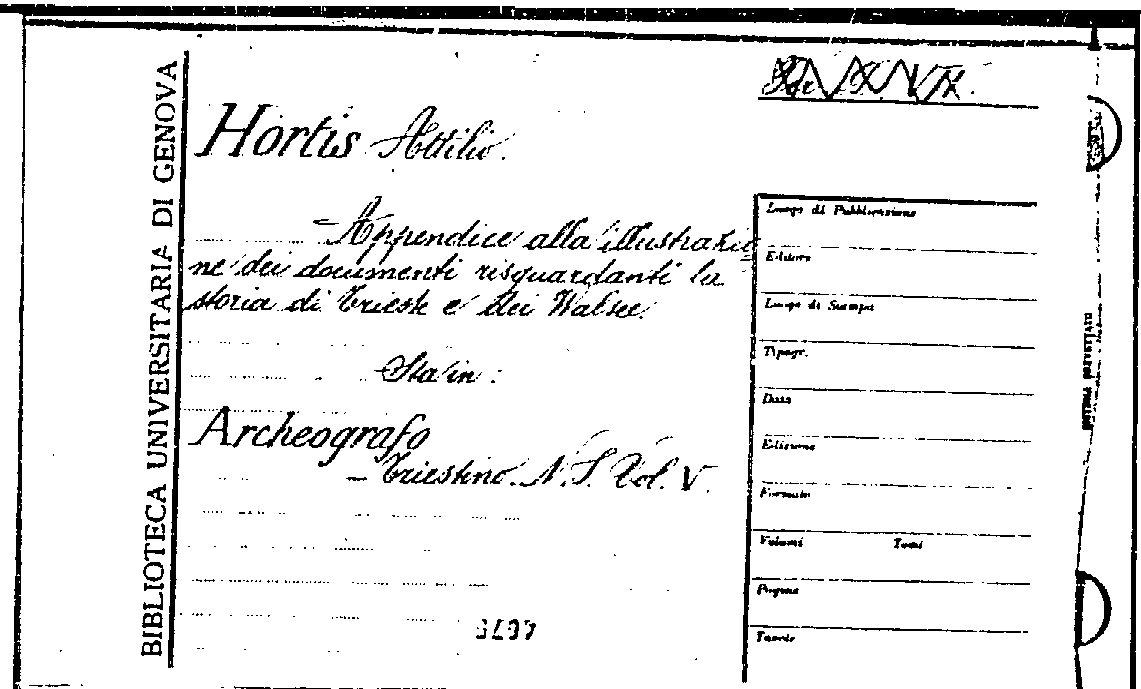 BIBLIOTECA UNIVERSITARIA DI GENOVA
Hortis Attilio.
= Appendice alla illustrazio
ne dei documenti risguardanti la
storia di Trieste e dei Walsee.
Sta in:
Archeografo
– Triestino. N. S. Vol. V.
Luogo di Pubblicazione
Editore
Luogo di Stampa
Tipogr.
Data
Edizione
Formato
Volumi Tomi
Pagine
Tavole